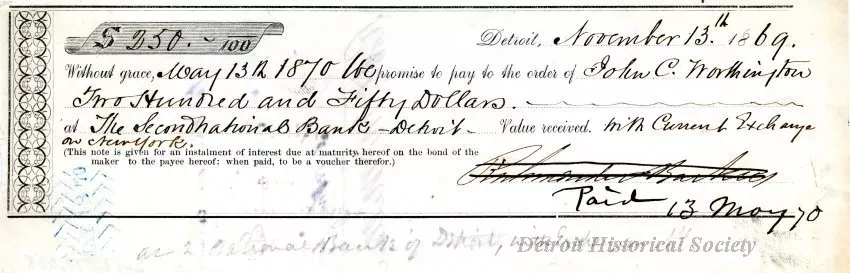 $ 250.- /100
Detroit, November 13.th 1869.
Without grace, May 13th 1870 We promise to pay to the order of John C. Worthington
Two Hundred and Fifty Dollars.
at The Second National Bank - Detroit - Value received. With Current Exchange
on New York.
(This note is given for an instalment of interest due at maturity hereof on the bond of the
maker to the payee hereof: when paid, to be a voucher therefor.)
Paid 13 May 70
National Bank of Detroit,
Detroit Historical Society